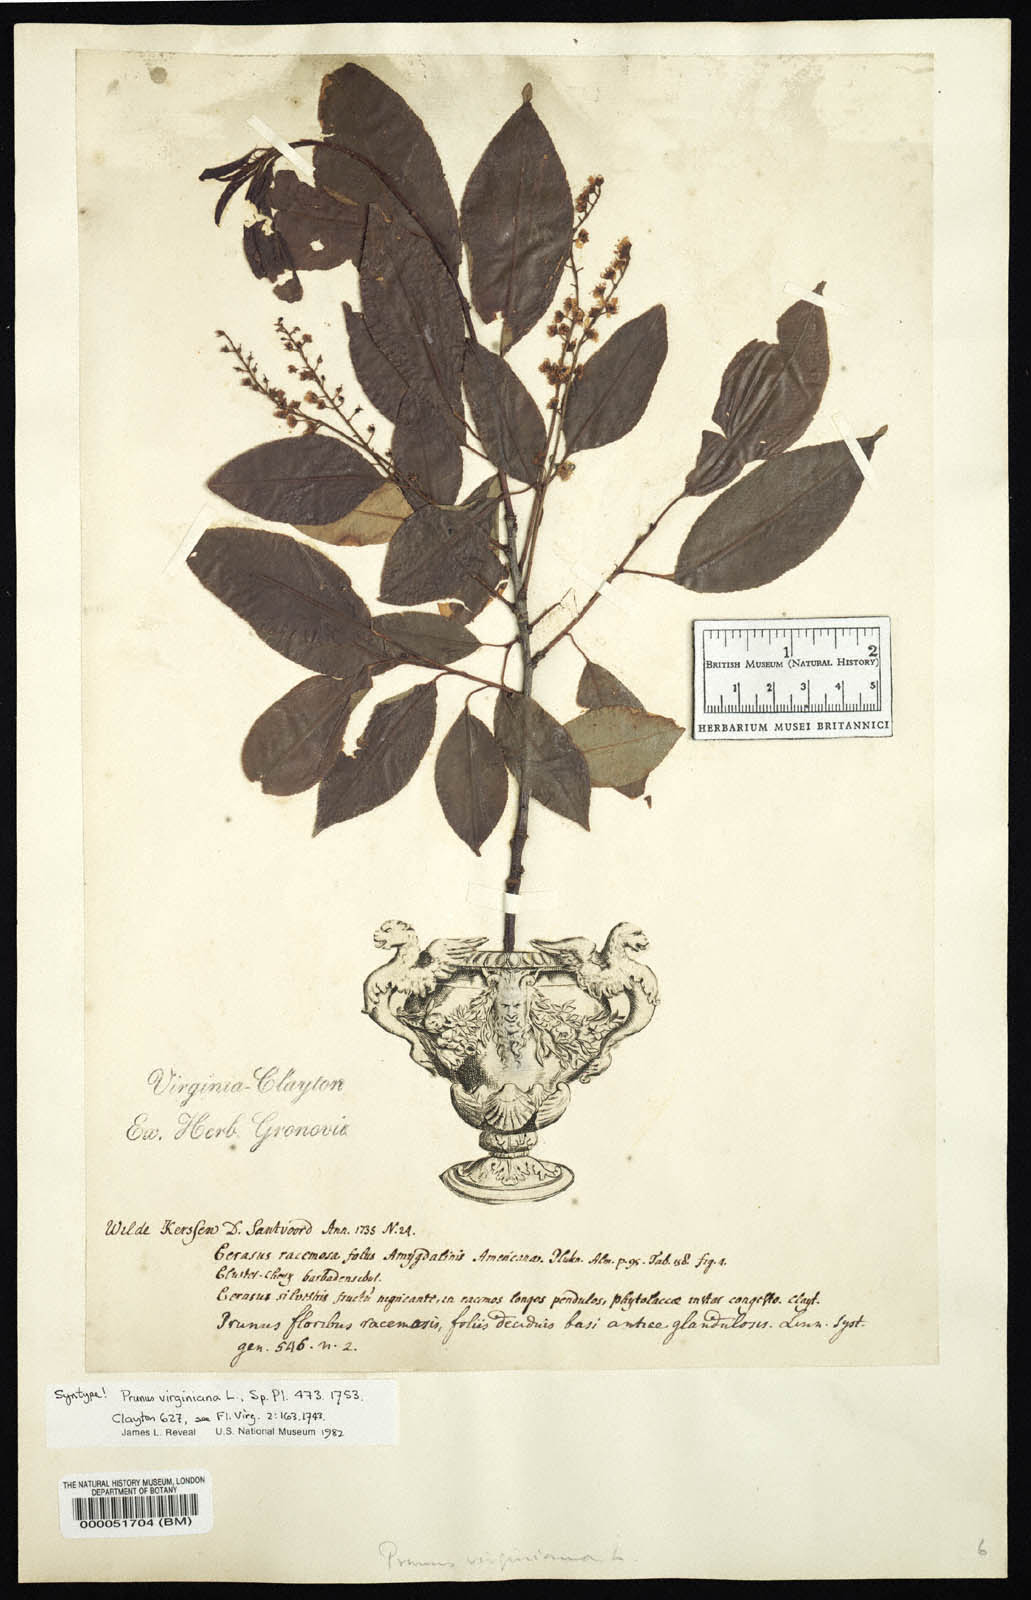 1 2
BRITISH MUSEUM (NATURAL HISTORY)
1 2 3 4 5
HERBARIUM MUSEI BRITANNICI
Virginia-Clayton
Ex. Herb. Gronovii
Wilde Kerssen D. Santvoord Ann. 1735 N. 24.
Cerasus racemosa foliis Amygdalinis Americana. Plukn. Alm. p. 95. Tab. 158. fig. 4.
Cluster-Cherry
Cerasus silvestris fructu nigricante, in racemos longos pendulos, phytolaccæ instar congesto. Clayt.
Prunus floribus racemosis, foliis deciduis basi antice glandulosis. Linn. Syst.
gen. 546. n. 2.
Syntype! Prunus virginiana L., Sp. Pl. 473. 1753.
Clayton 627, see Fl. Virg. 2: 163. 1743.
James L. Reveal U.S. National Museum 1982
THE NATURAL HISTORY MUSEUM, LONDON
DEPARTMENT OF BOTANY
000051704 (BM)
Prunus virginiana L.
6